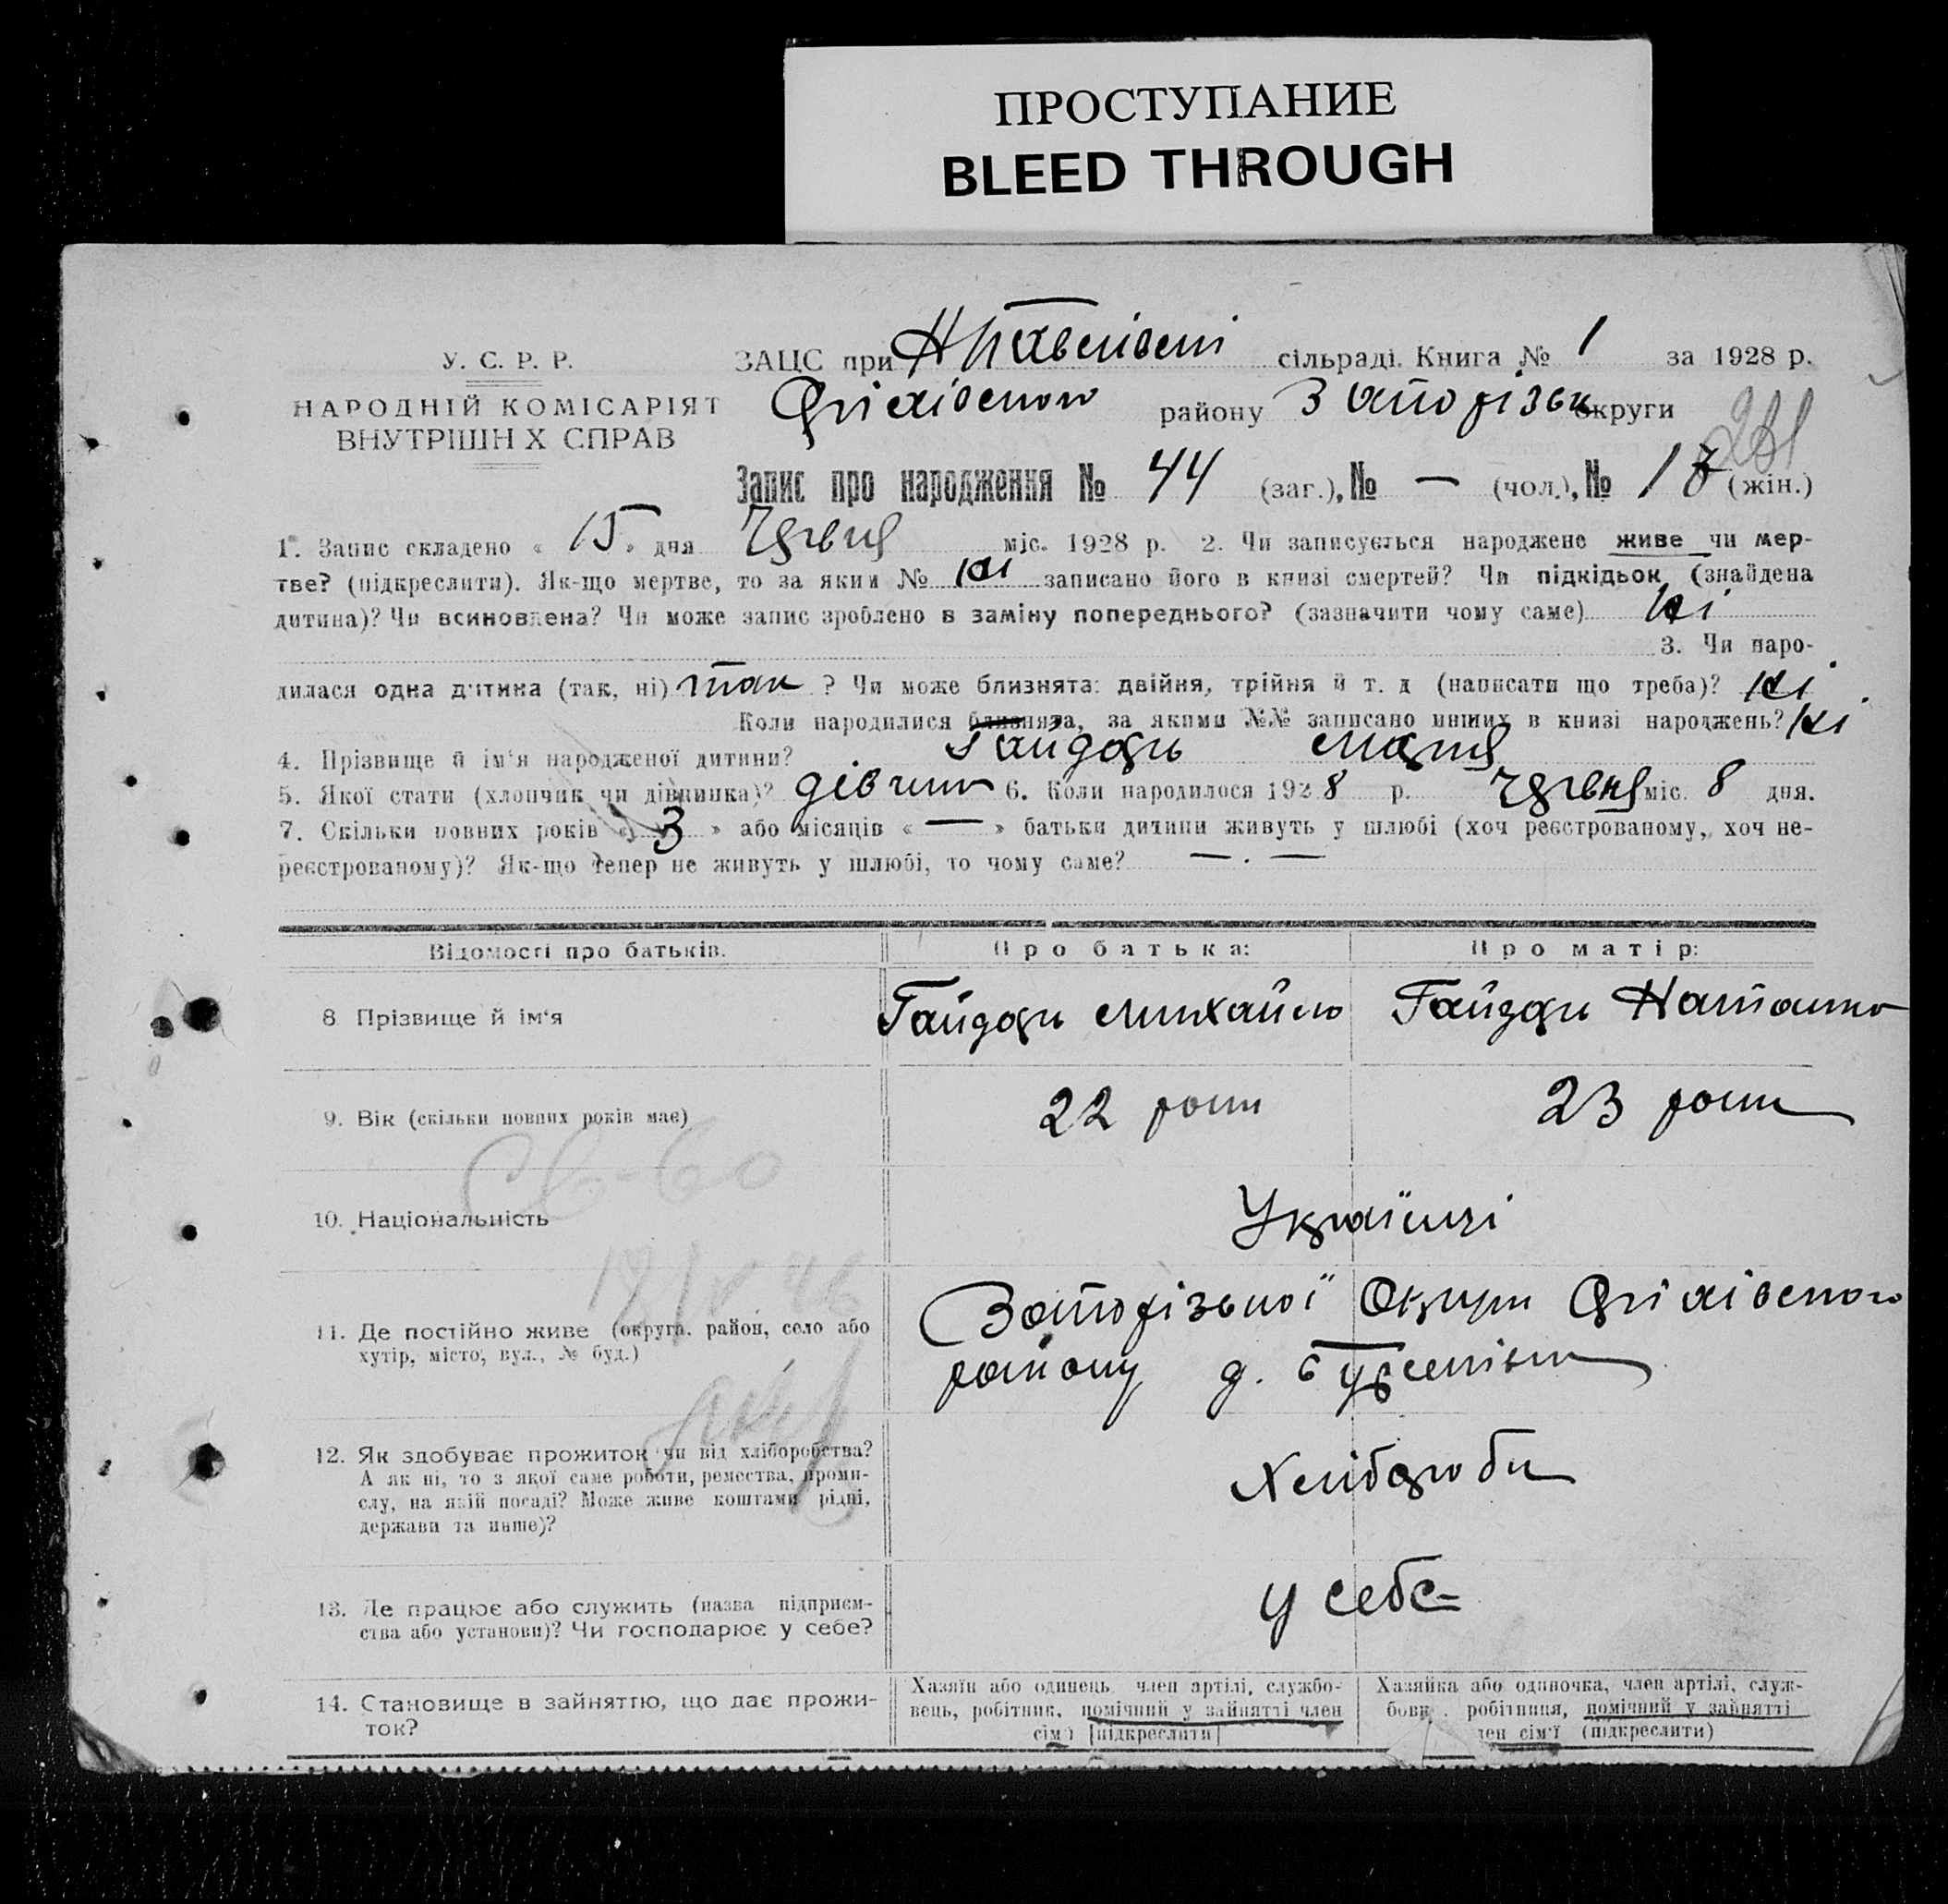 ПРОСТУПАНИЕ
BLEED THROUGH
У. С. Р. Р.
НАРОДНІЙ КОМІСАРІЯТ
ВНУТРІШН Х СПРАВ
ЗАЦС при сільраді. Книга № 1 за 1928 р.
Оріхівського району Запорізьк округи
Запис про народження № 44 (заг.), № — (чол.), № 17 (жін.)
1. Запис складено « 15 » дня Червня міс. 1928 р. 2. Чи записується народжене живе чи мер-
тве? (підкреслити). Як-що мертве, то за яким № ні записано його в книзі смертей? Чи підкідьок (знайдена
дитина)? Чи всиновлена? Чи може запис зроблено в заміну попереднього? (зазначити чому саме) ні
3. Чи наро-
дилася одна дитина (так, ні) так ? Чи може близнята: двійня, трійня й т. д (написати що треба)? ні
Коли народилися близнята, за якими №№ записано инших в книзі народжень? ні
4. Прізвище й ім'я народженої дитини? Гайдарь Марія
5. Якої стати (хлопчик чи дівчинка)? дівчин 6. Коли народилося 1928 р. Червня міс. 8 дня.
7. Скільки повних років « 3 » або місяців « — » батьки дитини живуть у шлюбі (хоч реєстрованому, хоч не-
реєстрованому)? Як-що тепер не живуть у шлюбі, то чому саме? — . —
Відомості про батьків. Про батька: Про матір:
8 Прізвище й ім'я Гайдарь Михайло Гайдарь Наталка
9. Вік (скільки повних років має) 22 роки 23 роки
10. Національність Українці
11. Де постійно живе (округа, район, село або
хутір, місто, вул., № буд.)
Запорізької Округи Оріхівського
району
12. Як здобуває прожиток чи від хліборобства?
А як ні, то з якої саме роботи, ремества, проми-
слу, на якій посаді? Може живе коштами рідні,
держави та инше)?
Хлібороби
13. Де працює або служить (назва підприєм-
ства або установи)? Чи господарює у себе?
у себе
14. Становище в зайняттю, що дає прожи-
ток?
Хазяїн або одинець член артілі, службо-
вець, робітник, помічний у зайнятті член
сім'ї [підкреслити]
Хазяйка або одиночка, член артілі, служ-
бовк . робітниця, помічний у зайнятті
лен сім'ї (підкреслити)